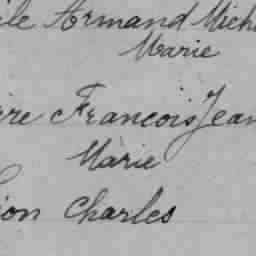 ile Armand Mich
Marie
rre Francois Jean
Marie
ion Charles